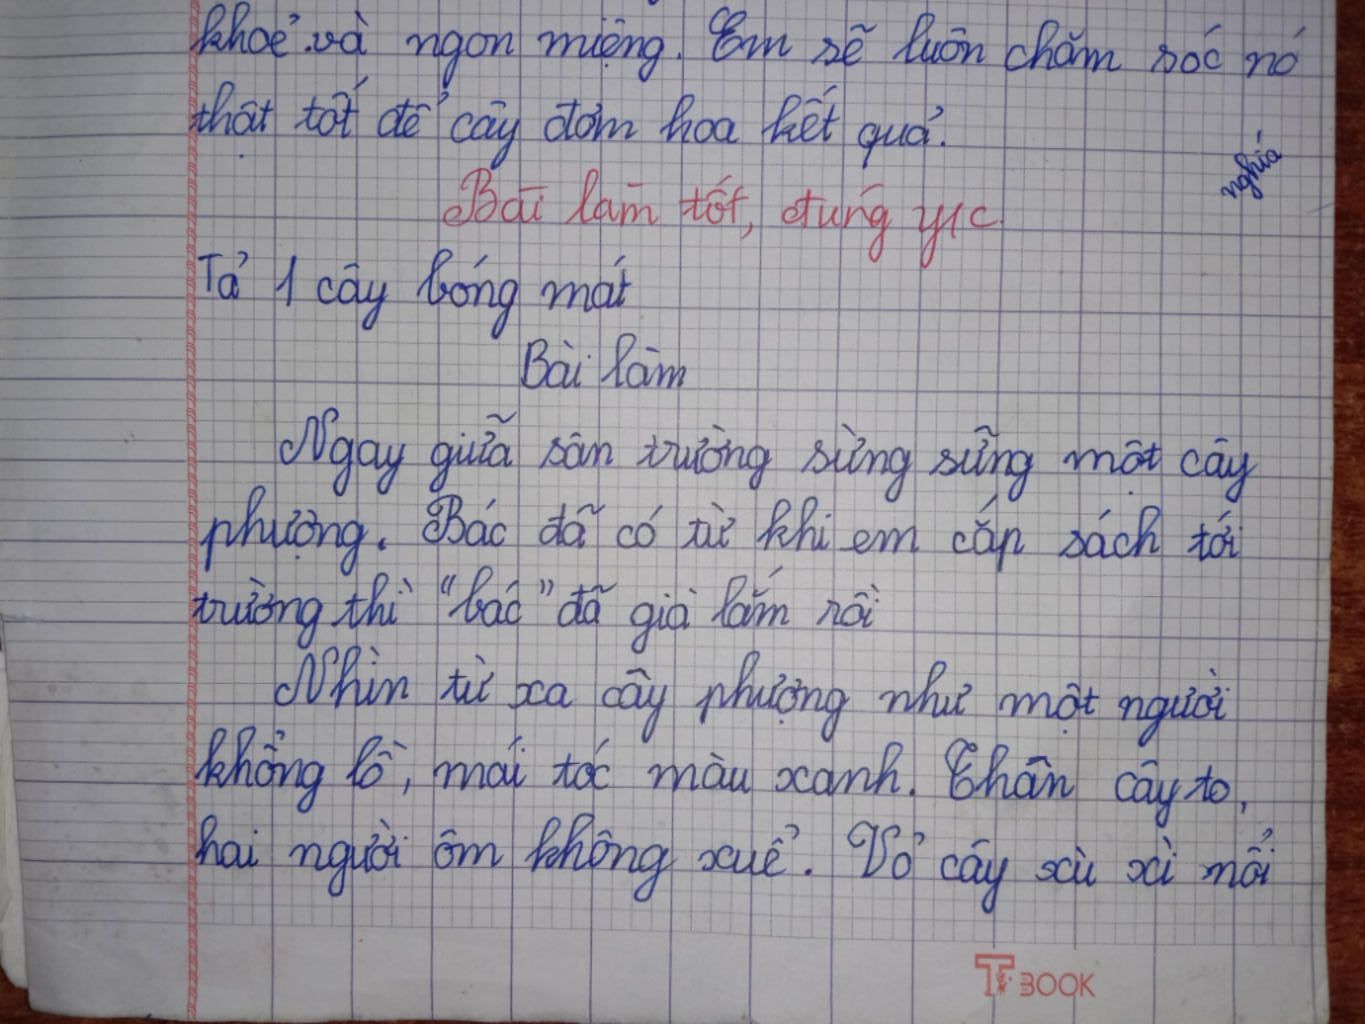 khoẻ và ngon miệng. Em sẽ luôn chăm sóc nó
thật tốt để cây đơm hoa kết quả.
nghĩa
Bài làm tốt, đúng y/c
Tả 1 cây bóng mát
Bài làm
Ngay giữa sân trường sừng sững một cây
phượng. Bác đã có từ khi em cắp sách tới
trường thì "bác" đã già lắm rồi
Nhìn từ xa cây phượng như một người
khổng lồ, mái tóc màu xanh. Thân cây to,
hai người ôm không xuể. Vỏ cây xù xì mổi
TBOOK